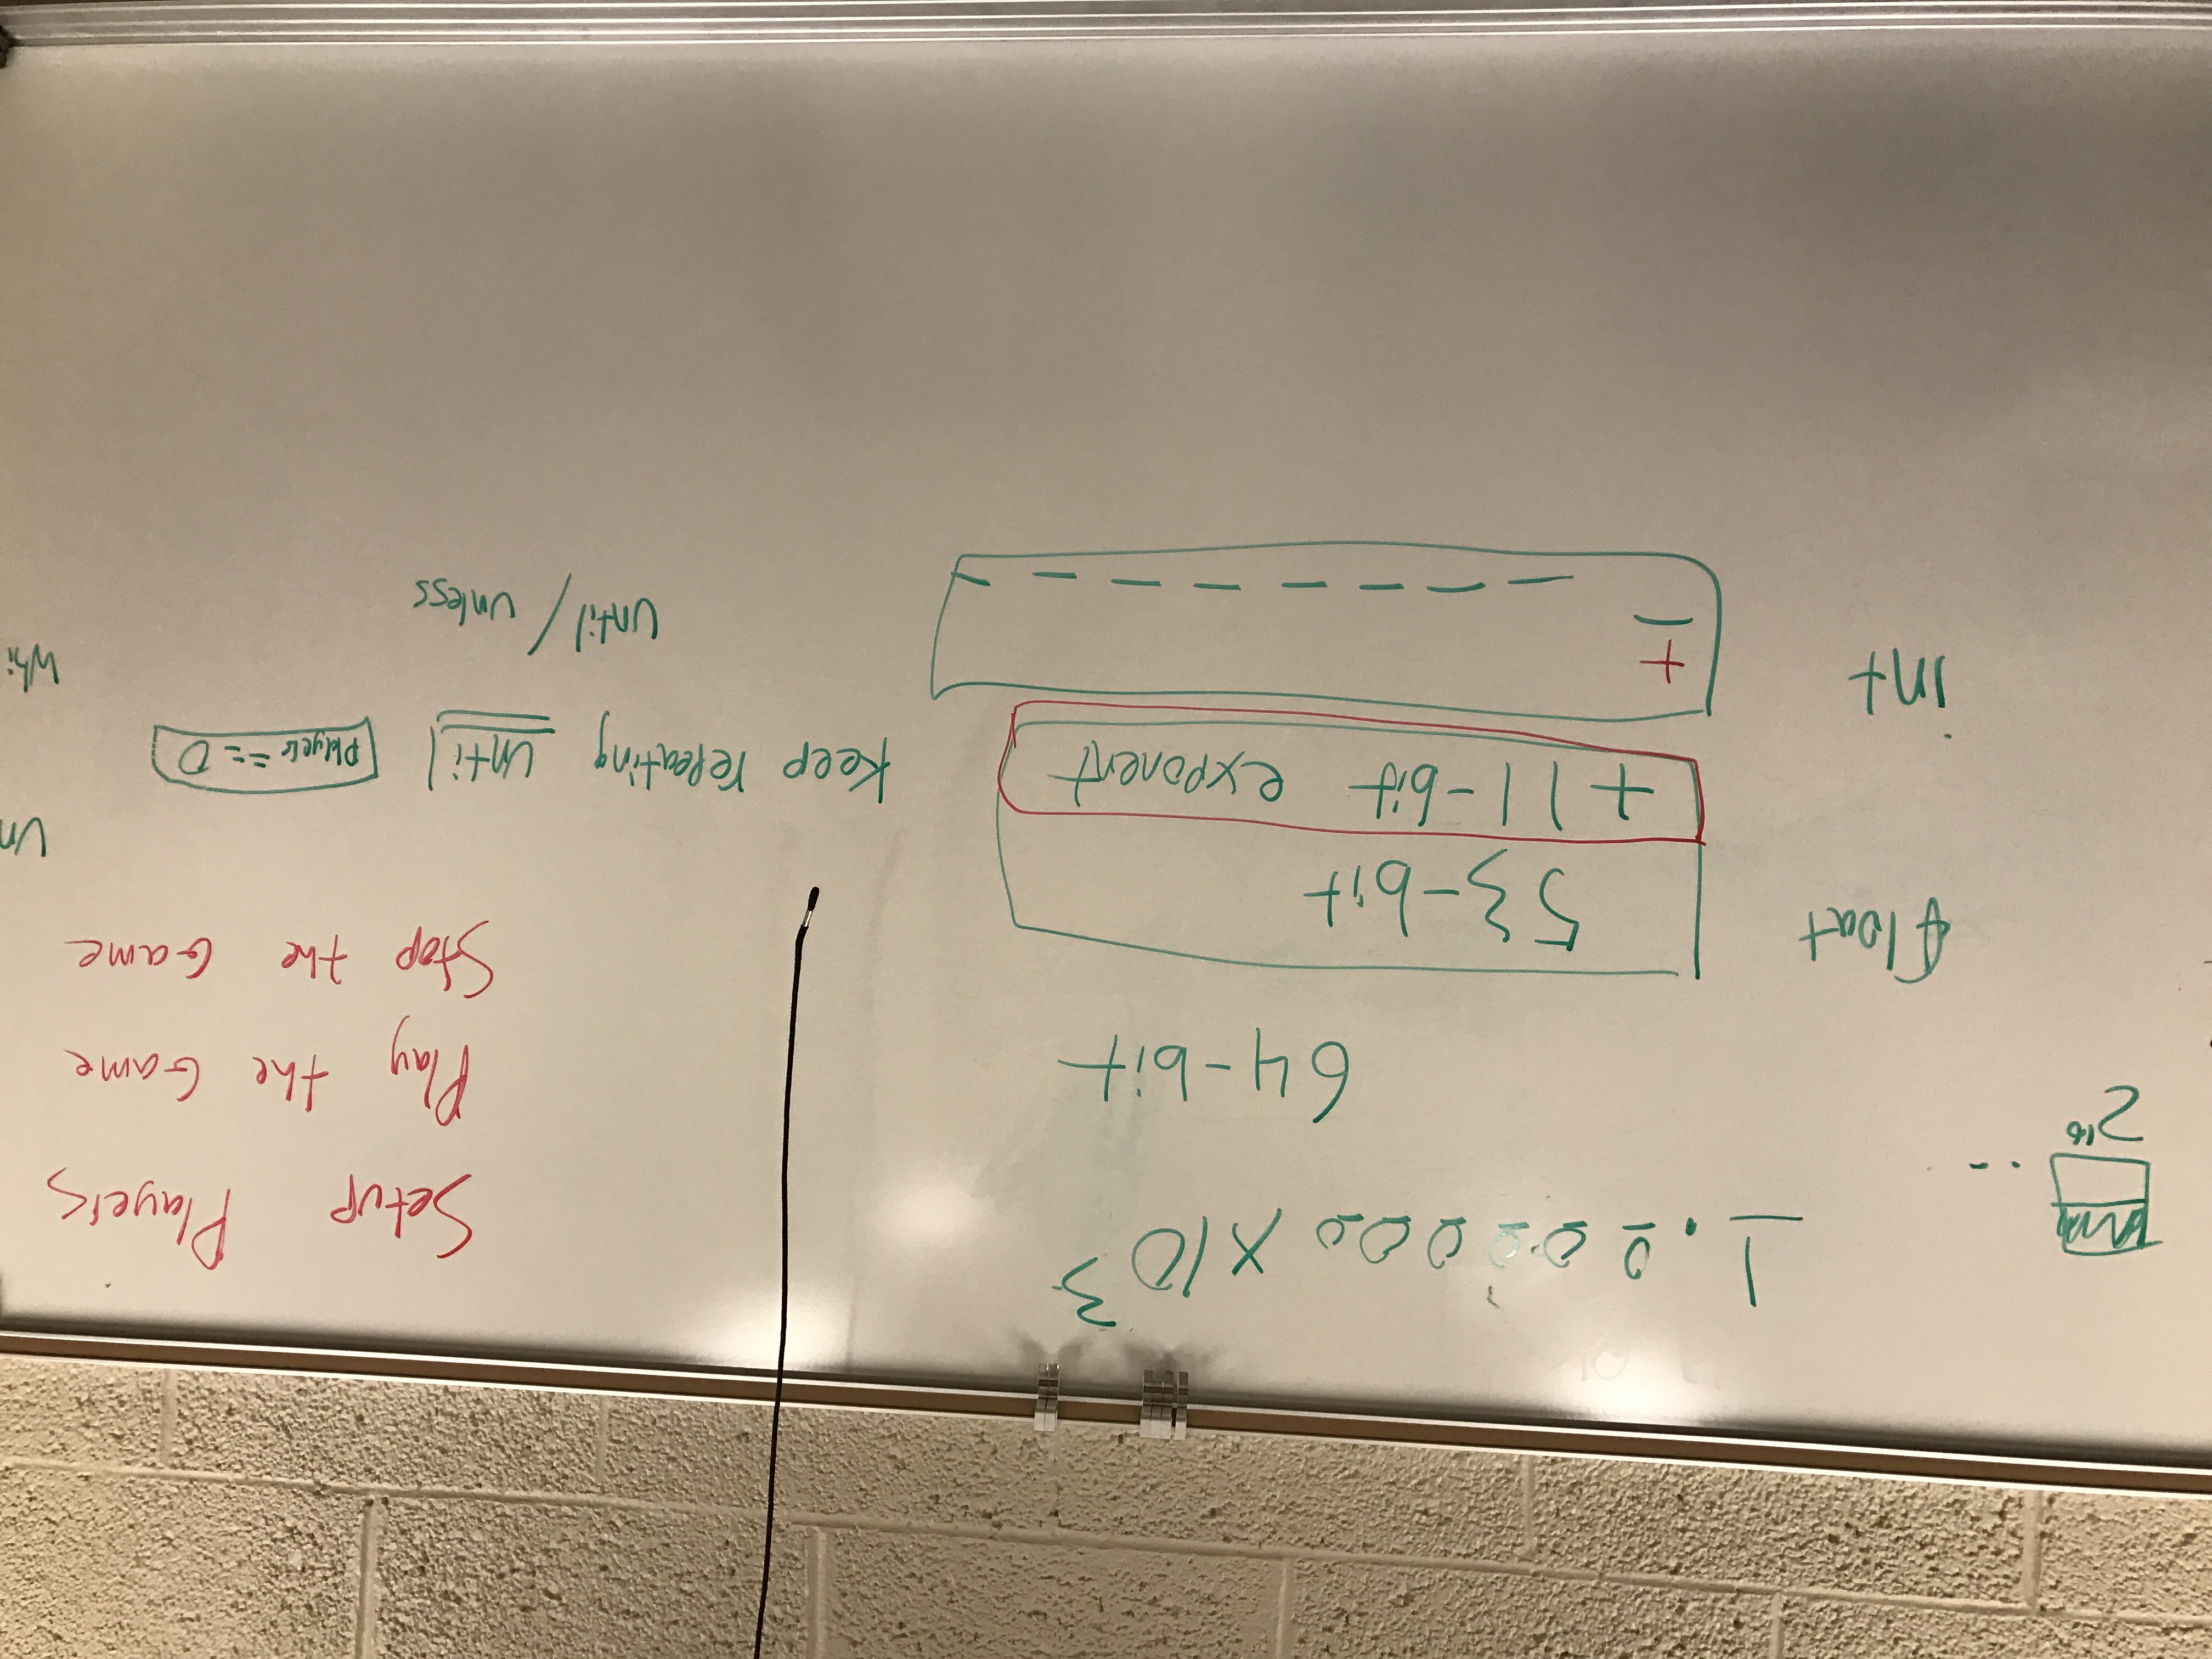 1.000000 x 10³
2¹⁶
64-bit
float
53-bit
+ 11-bit exponent
int
+
Setup Players
Play the Game
Stop the Game
Keep repeating until Players == 0
until / unless